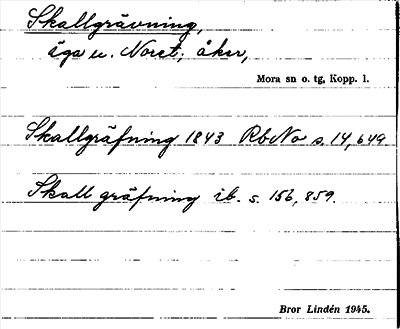 Skallgrävning,
äga u. Noret; åker,
Mora sn o. tg, Kopp. l.
Skallgräfning 1843 RbNo s. 14, 649
Skall gräfning ib. s. 156, 859.
Bror Lindén 1945.